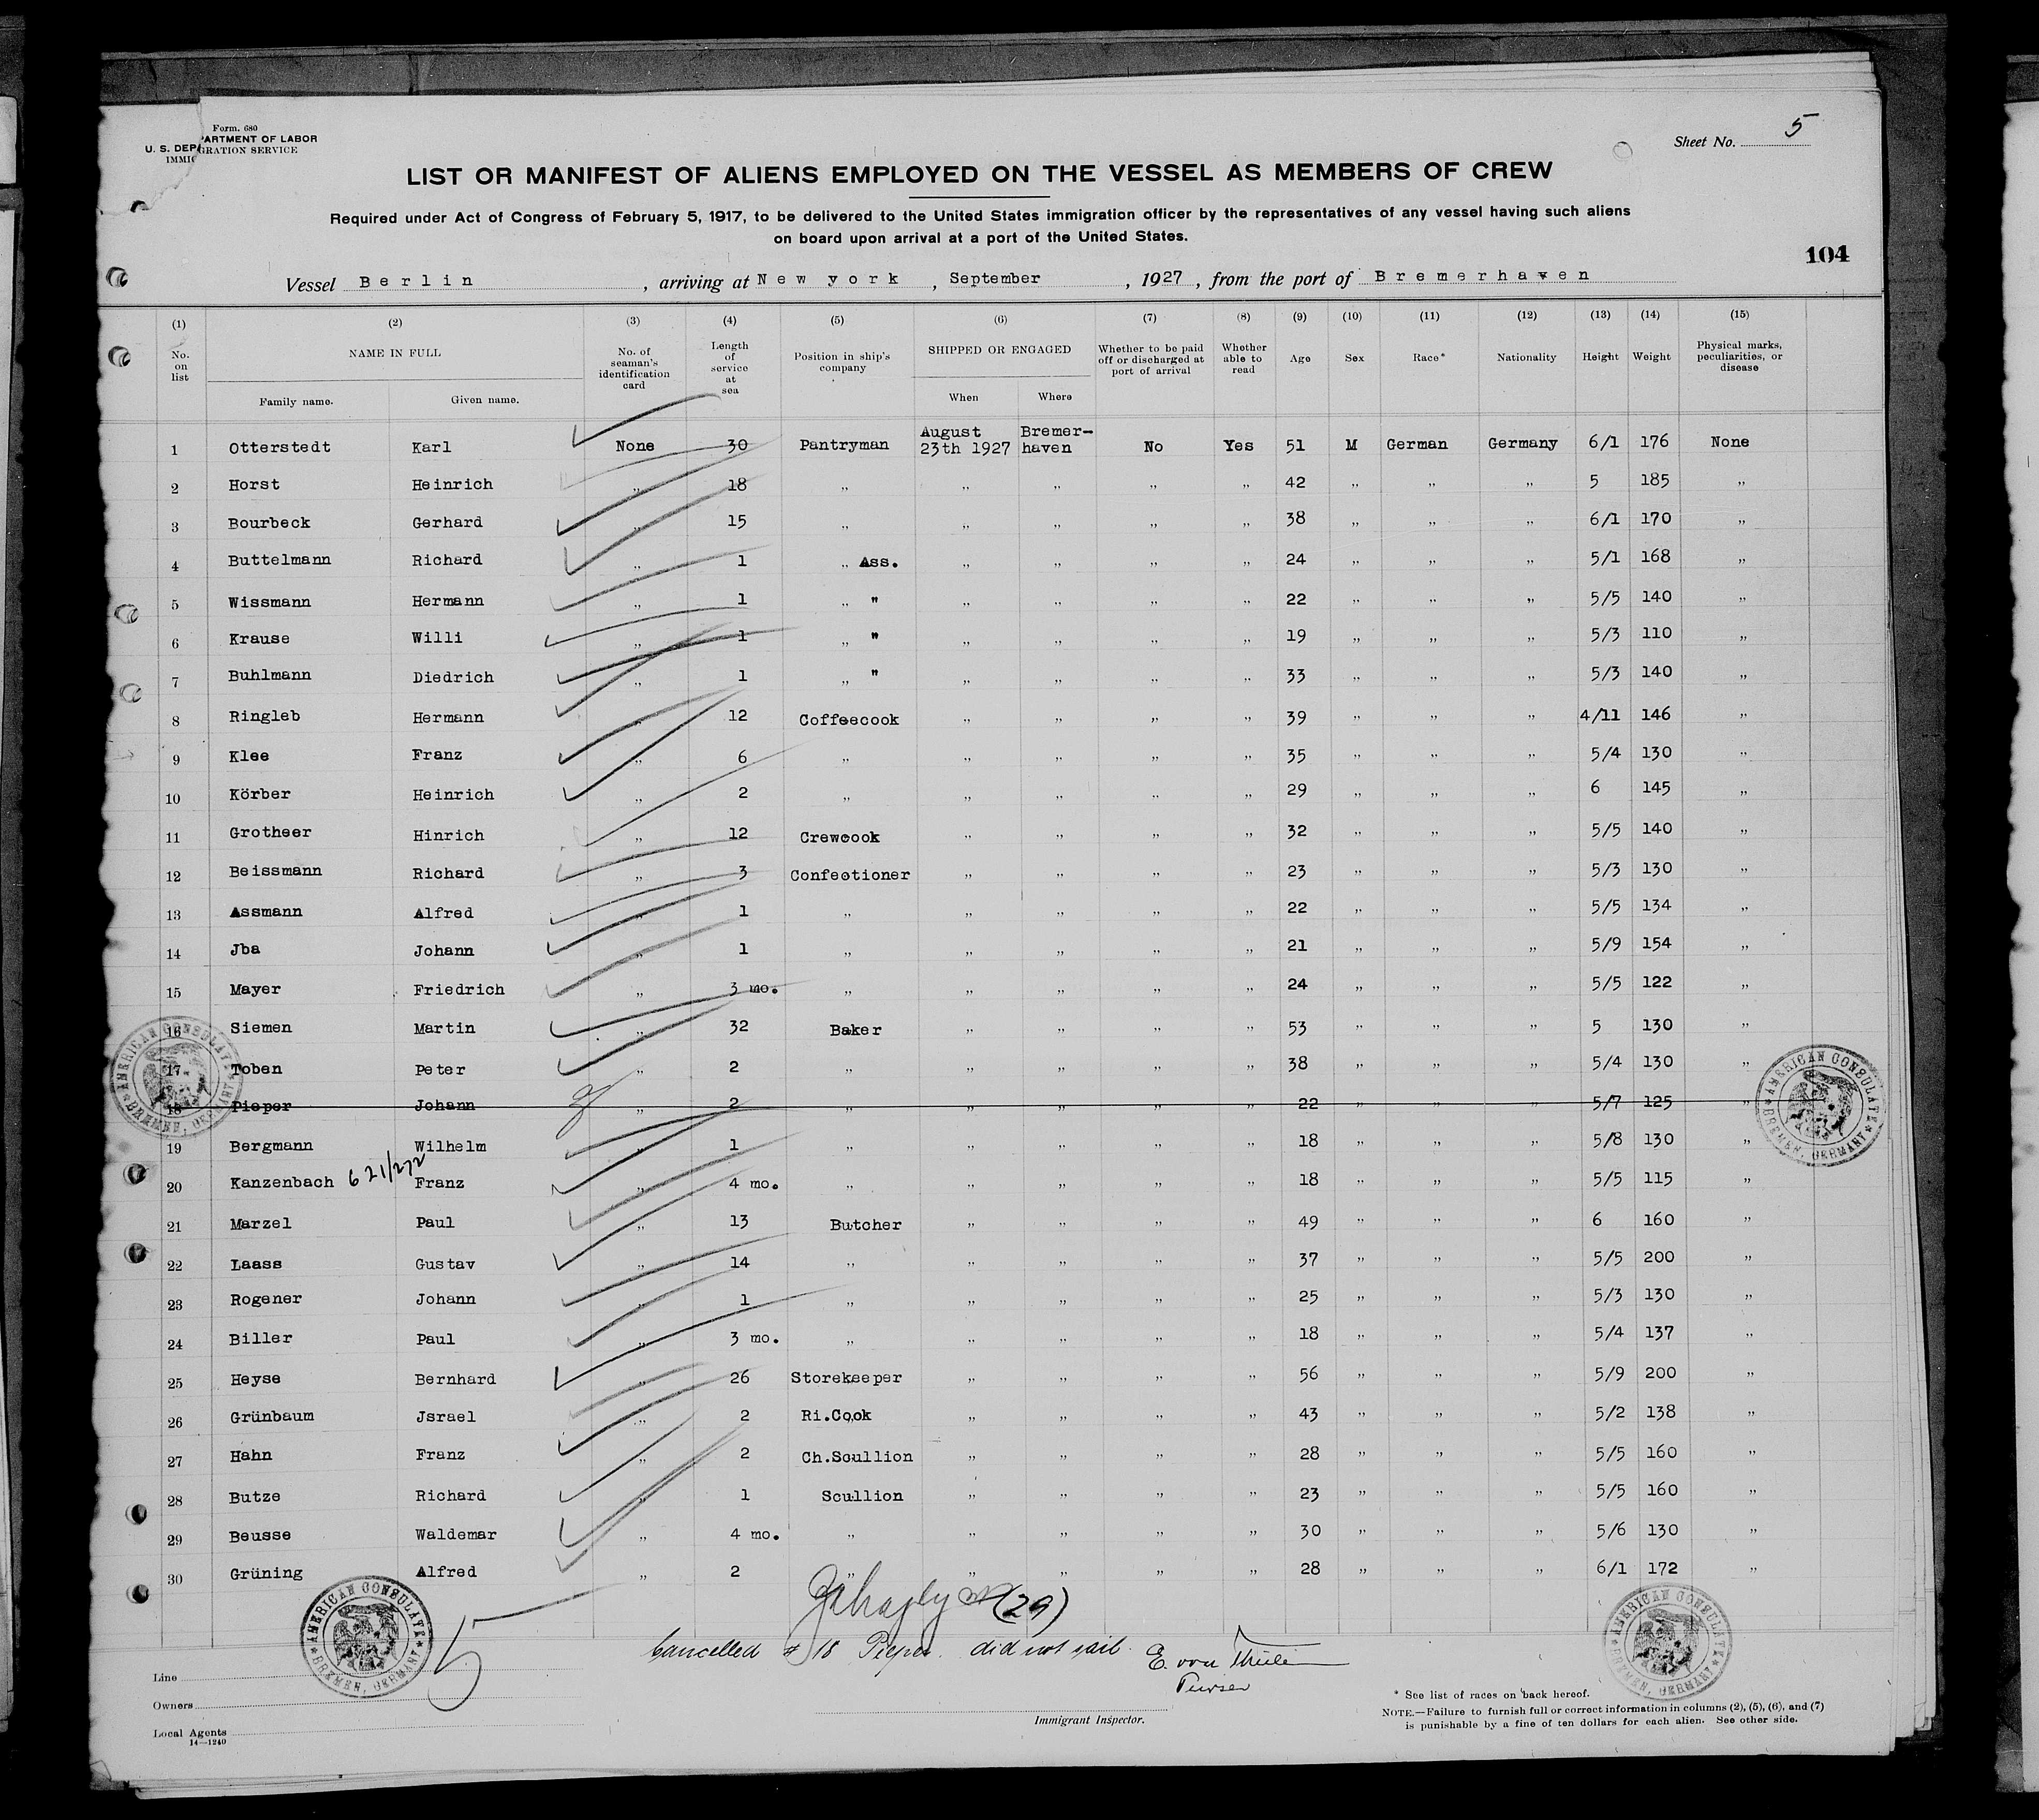 Form. 680
U. S. DEPARTMENT OF LABOR
IMMIGRATION SERVICE
Sheet No. 5
LIST OR MANIFEST OF ALIENS EMPLOYED ON THE VESSEL AS MEMBERS OF CREW
Required under Act of Congress of February 5, 1917, to be delivered to the United States immigration officer by the representatives of any vessel having such aliens
on board upon arrival at a port of the United States.
104
Vessel Berlin, arriving at New york, September, 1927, from the port of Bremerhaven
(1) (2) (3) (4) (5) (6) (7) (8) (9) (10) (11) (12) (13) (14) (15)
No. on list NAME IN FULL Family name. Given name. No. of seaman's identification card Length of service at sea Position in ship's company SHIPPED OR ENGAGED When Where Whether to be paid off or discharged at port of arrival Whether able to read Age Sex Race* Nationality Height Weight Physical marks, peculiarities, or disease
1 Otterstedt Karl None 30 Pantryman August 23th 1927 Bremer-haven No Yes 51 M German Germany 6/1 176 None
2 Horst Heinrich " 18 " " " " " 42 " " " 5 185 "
3 Bourbeck Gerhard " 15 " " " " " 38 " " " 6/1 170 "
4 Buttelmann Richard " 1 " Ass. " " " " 24 " " " 5/1 168 "
5 Wissmann Hermann " 1 " " " " " " 22 " " " 5/5 140 "
6 Krause Willi " 1 " " " " " " 19 " " " 5/3 110 "
7 Buhlmann Diedrich " 1 " " " " " " 33 " " " 5/3 140 "
8 Ringleb Hermann " 12 Coffeecook " " " " 39 " " " 4/11 146 "
9 Klee Franz " 6 " " " " " 35 " " " 5/4 130 "
10 Körber Heinrich " 2 " " " " " 29 " " " 6 145 "
11 Grotheer Hinrich " 12 Crewcook " " " " 32 " " " 5/5 140 "
12 Beissmann Richard " 3 Confectioner " " " " 23 " " " 5/3 130 "
13 Assmann Alfred " 1 " " " " " 22 " " " 5/5 134 "
14 Jba Johann " 1 " " " " " 21 " " " 5/9 154 "
15 Mayer Friedrich " 3 mo. " " " " " 24 " " " 5/5 122 "
16 Siemen Martin " 32 Baker " " " " 53 " " " 5 130 "
17 Toben Peter " 2 " " " " " 38 " " " 5/4 130 "
18 Pieper Johann " 2 " " " " " 22 " " " 5/7 125 "
19 Bergmann Wilhelm " 1 " " " " " 18 " " " 5/8 130 "
20 Kanzenbach 621/272 Franz " 4 mo. " " " " " 18 " " " 5/5 115 "
21 Marzel Paul " 13 Butcher " " " " 49 " " " 6 160 "
22 Laass Gustav " 14 " " " " " 37 " " " 5/5 200 "
23 Rogener Johann " 1 " " " " " 25 " " " 5/3 130 "
24 Biller Paul " 3 mo. " " " " " 18 " " " 5/4 137 "
25 Heyse Bernhard " 26 Storekeeper " " " " 56 " " " 5/9 200 "
26 Grünbaum Jsrael " 2 Ri.Cook " " " " 43 " " " 5/2 138 "
27 Hahn Franz " 2 Ch.Scullion " " " " 28 " " " 5/5 160 "
28 Butze Richard " 1 Scullion " " " " 23 " " " 5/5 160 "
29 Beusse Waldemar " 4 mo. " " " " " 30 " " " 5/6 130 "
30 Grüning Alfred " 2 " " " " " 28 " " " 6/1 172 "
AMERICAN CONSULATE BREMEN, GERMANY
AMERICAN CONSULATE BREMEN, GERMANY
AMERICAN CONSULATE BREMEN, GERMANY
AMERICAN CONSULATE BREMEN, GERMANY
5
(29)
Cancelled # 18 Pieper. did not sail. E. von Thülen
Purser
Line
Owners
Local Agents
14—1240
Immigrant Inspector.
* See list of races on back hereof.
NOTE.—Failure to furnish full or correct information in columns (2), (5), (6), and (7)
is punishable by a fine of ten dollars for each alien. See other side.